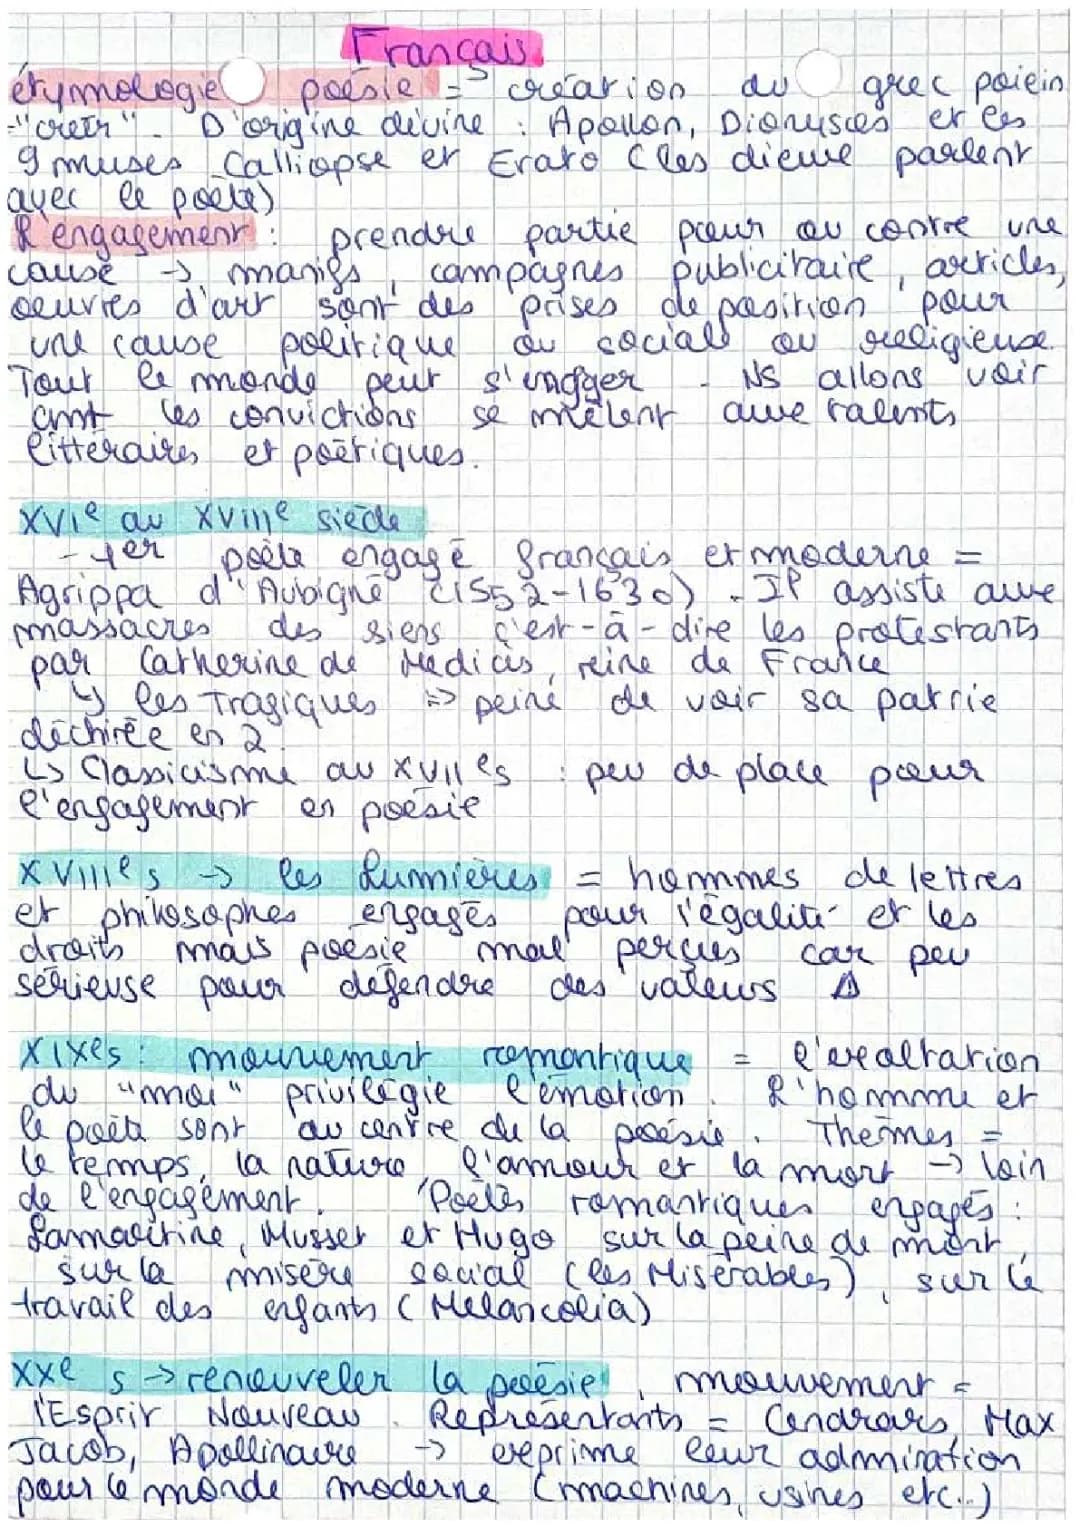 Français
étymologie poésie = création du grec poiein
="creér". D'origine divine : Apollon, Dionysies et les
9 muses Calliopse et Erato (les dieux parlent
avec le poète)
L'engagement : prendre partie pour ou contre une
cause → manifs, campagnes publicitaire, articles,
oeuvres d'art sont des prises de position pour
une cause politique ou sociale ou religieuse.
Tout le monde peut s'engager. NS allons voir
cmt les convictions se mêlent aux talents
littéraires et poétiques.
XVIe au XVIIIe siècle
- 1er poète engagé français et moderne =
Agrippa d'Aubigné (1552-1630). Il assiste aux
massacres des siens c'est-à-dire les protestants
par Catherine de Medicis, reine de France
↳ les Tragiques => peiné de voir sa patrie
déchirée en 2.
↳ Classicisme au XVIIes : peu de place pour
l'engagement en poésie
XVIIIes → les Lumières = hommes de lettres
et philosophes engagés pour l'égalité et les
droits mais poésie mal perçues car peu
sérieuse pour défendre des valeurs
XIXes : mouvement romantique = l'exaltation
du "moi" privilégie l'émotion. L'homme et
le poète sont au centre de la poésie. Thèmes =
le temps, la nature, l'amour et la mort → loin
de l'engagement. Poètes romantiques engagés :
Lamartine, Musset et Hugo sur la peine de mort,
sur la misère social (les Misérables), sur le
travail des enfants (Melancolia)
XXe s → renouveler la poésie, mouvement =
l'Esprit Nouveau. Représentants = Cendrars, Max
Jacob, Apollinaire → exprime leur admiration
pour le monde moderne (machines, usines etc...)